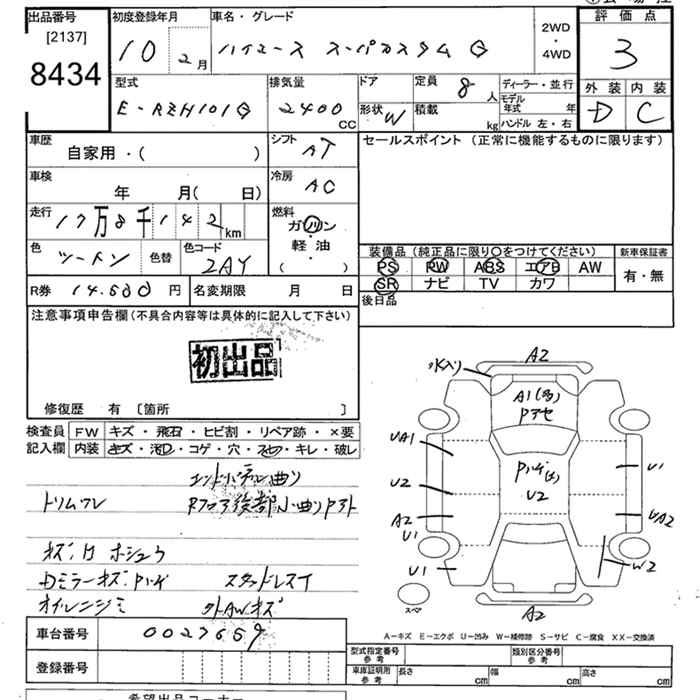 出品番号
[2137]
8434
初度登録年月
10 2月
車名・グレード
ハイエース スーパーカスタム G
2WD
・
4WD
評価点
3
外装 内装
D C
型式
E-RZH101G
排気量
2400
CC
ドア
形状 W
定員 8 人
積載 kg
ディーラー・並行
モデル年式 年
ハンドル 左・右
車歴
自家用・( )
シフト
AT
セールスポイント (正常に機能するものに限ります)
車検
年 月( 日)
冷房
AC
走行
17万8千142km
燃料
ガソリン
・
軽油
( )
色
ツートン
色替
色コード
2AY
装備品 (純正品に限り〇をつけてください)
PS PW ABS エアB AW
SR ナビ TV カワ
新車保証書
有・無
R券 14.580 円
名変期限 月 日
後日品
注意事項申告欄(不具合内容等は具体的に記入して下さい)
初出品
修復歴 有 〔箇所 〕
検査員
記入欄
FW キズ・飛石・ヒビ割・リペア跡・×要
内装 キズ・汚れ・コゲ・穴・・キレ・破レ
曲り
トリムワレ
Rフロア後部小曲りアト
キズ、 ホシュウ
ドミラーキズ、ハゲ スタッドレス
オイルニジミ 外AWキズ
水入り
A2
A1(多)
UA1
U2
A2
U1
U1
U2
U1
UA2
W2
スペア
A2
A-キズ E-エクボ U-凹み W-補修跡 S-サビ C-腐食 XX-交換済
車台番号 0027659
登録番号
型式指定番号
参考
類別区分番号
参考
車庫証明用
参考
長さ cm
幅 cm
高さ cm
希望出品コーナー